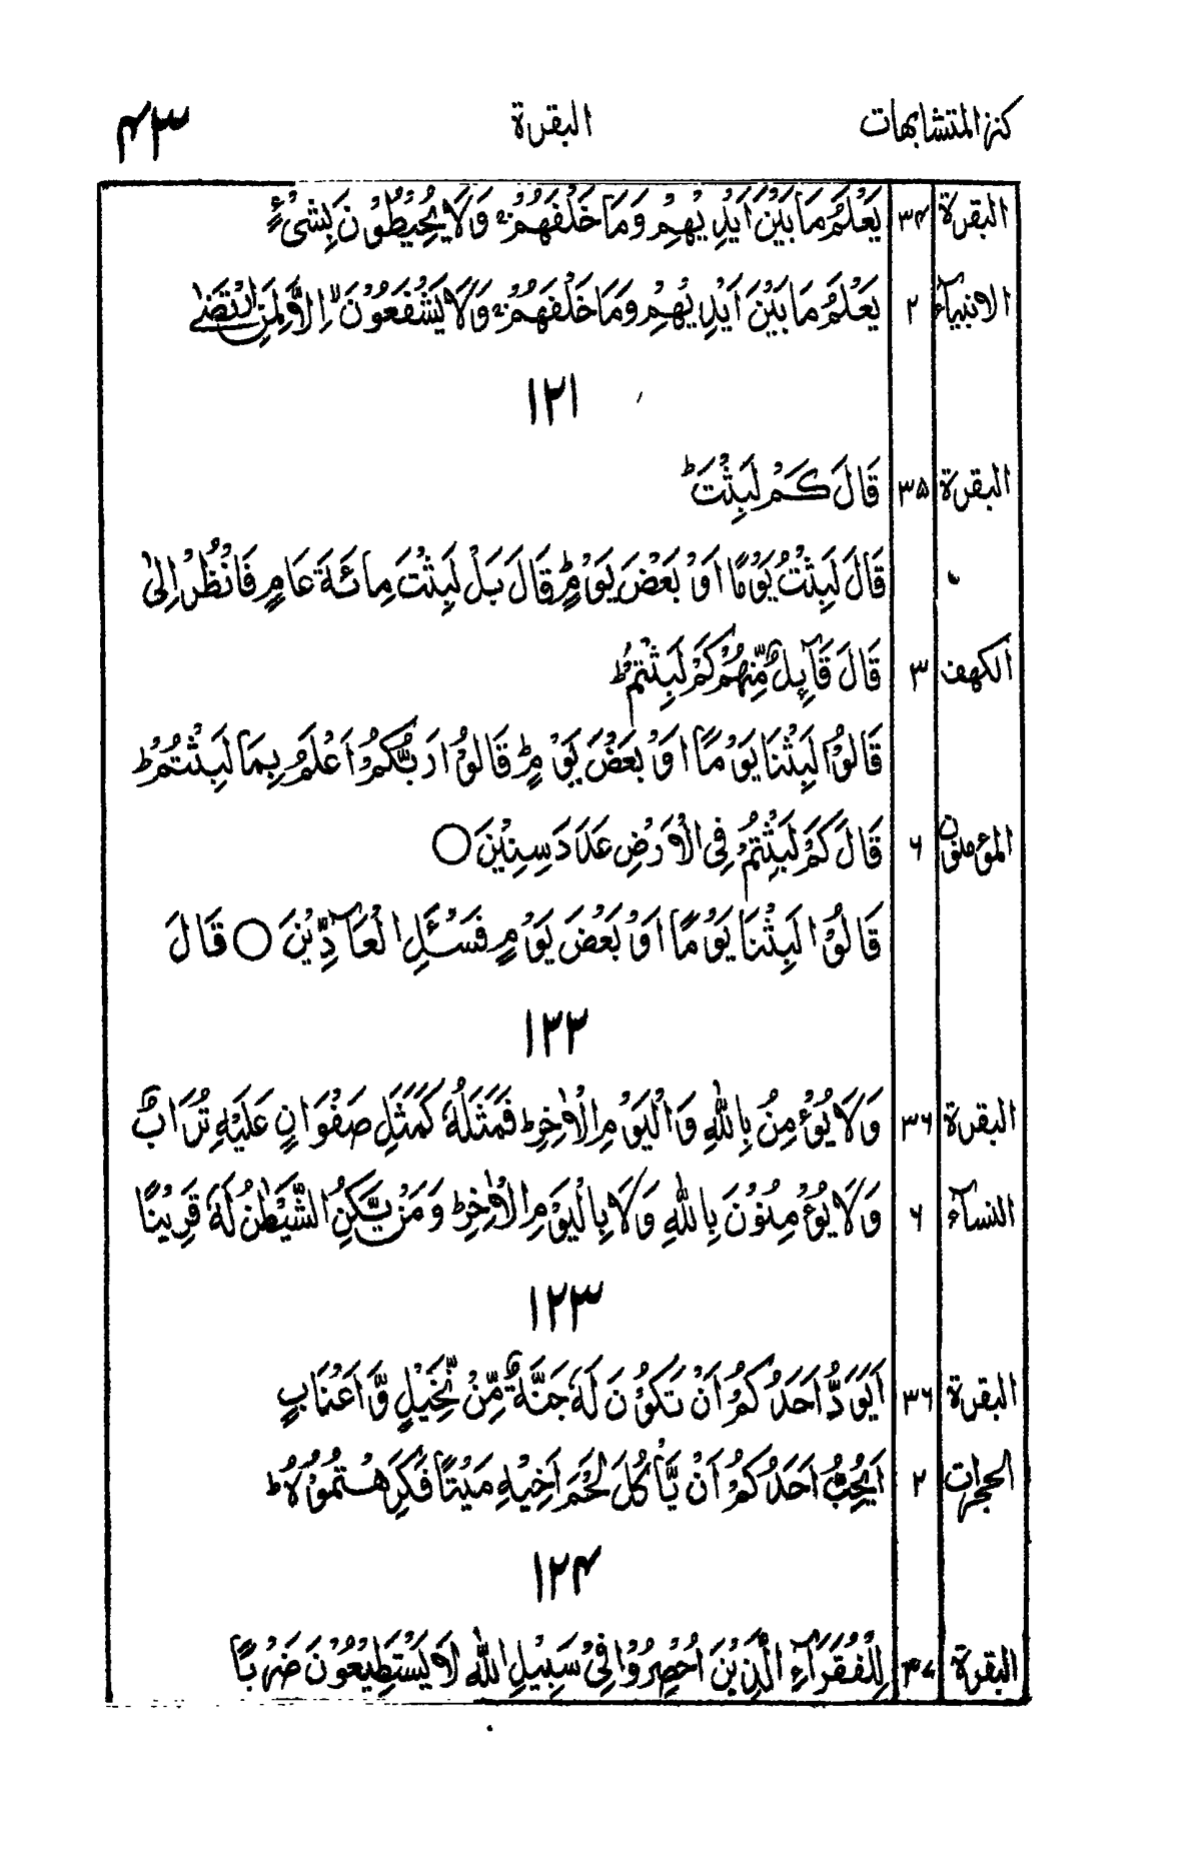 كنز المتشابهات البقرة ۴۳
البقرة ۳۴ يَعْلَمُ مَا بَيْنَ اَيْدِيْهِمْ وَمَا خَلْفَهُمْ ۚ وَلَا يُحِيْطُوْنَ بِشَیْءٍ
الانبيآء ۲ يَعْلَمُ مَا بَيْنَ اَيْدِيْهِمْ وَمَا خَلْفَهُمْ وَلَا يَشْفَعُوْنَ ۙ اِلَّا لِمَنِ ارْتَضٰی
۱۲۱
البقرة ۳۵ قَالَ كَمْ لَبِثْتَ ؕ
〃 قَالَ لَبِثْتُ يَوْمًا اَوْ بَعْضَ يَوْمٍ ؕ قَالَ بَلْ لَّبِثْتَ مِائَةَ عَامٍ فَانْظُرْ اِلٰی
الكهف ۳ قَالَ قَآئِلٌ مِّنْهُمْ كَمْ لَبِثْتُمْ ؕ
قَالُوْا لَبِثْنَا يَوْمًا اَوْ بَعْضَ يَوْمٍ ؕ قَالُوْا رَبُّكُمْ اَعْلَمُ بِمَا لَبِثْتُمْ ؕ
المؤمنون ۶ قَالَ كَمْ لَبِثْتُمْ فِی الْاَرْضِ عَدَدَ سِنِيْنَ ○
قَالُوْا لَبِثْنَا يَوْمًا اَوْ بَعْضَ يَوْمٍ فَسْئَلِ الْعَآدِّيْنَ ○ قَالَ
۱۲۲
البقرة ۳۶ وَلَا يُؤْمِنُ بِاللّٰهِ وَالْيَوْمِ الْاٰخِرِ ؕ فَمَثَلُهٗ كَمَثَلِ صَفْوَانٍ عَلَيْهِ تُرَابٌ
النسآء ۶ وَلَا يُؤْمِنُوْنَ بِاللّٰهِ وَلَا بِالْيَوْمِ الْاٰخِرِ ؕ وَمَنْ يَّكُنِ الشَّيْطٰنُ لَهٗ قَرِيْنًا
۱۲۳
البقرة ۳۶ اَيَوَدُّ اَحَدُكُمْ اَنْ تَكُوْنَ لَهٗ جَنَّةٌ مِّنْ نَّخِيْلٍ وَّاَعْنَابٍ
الحجرات ۲ اَيُحِبُّ اَحَدُكُمْ اَنْ يَّاْكُلَ لَحْمَ اَخِيْهِ مَيْتًا فَكَرِهْتُمُوْهُ ؕ
۱۲۴
البقرة ۳۷ لِلْفُقَرَآءِ الَّذِيْنَ اُحْصِرُوْا فِیْ سَبِيْلِ اللّٰهِ لَا يَسْتَطِيْعُوْنَ ضَرْبًا